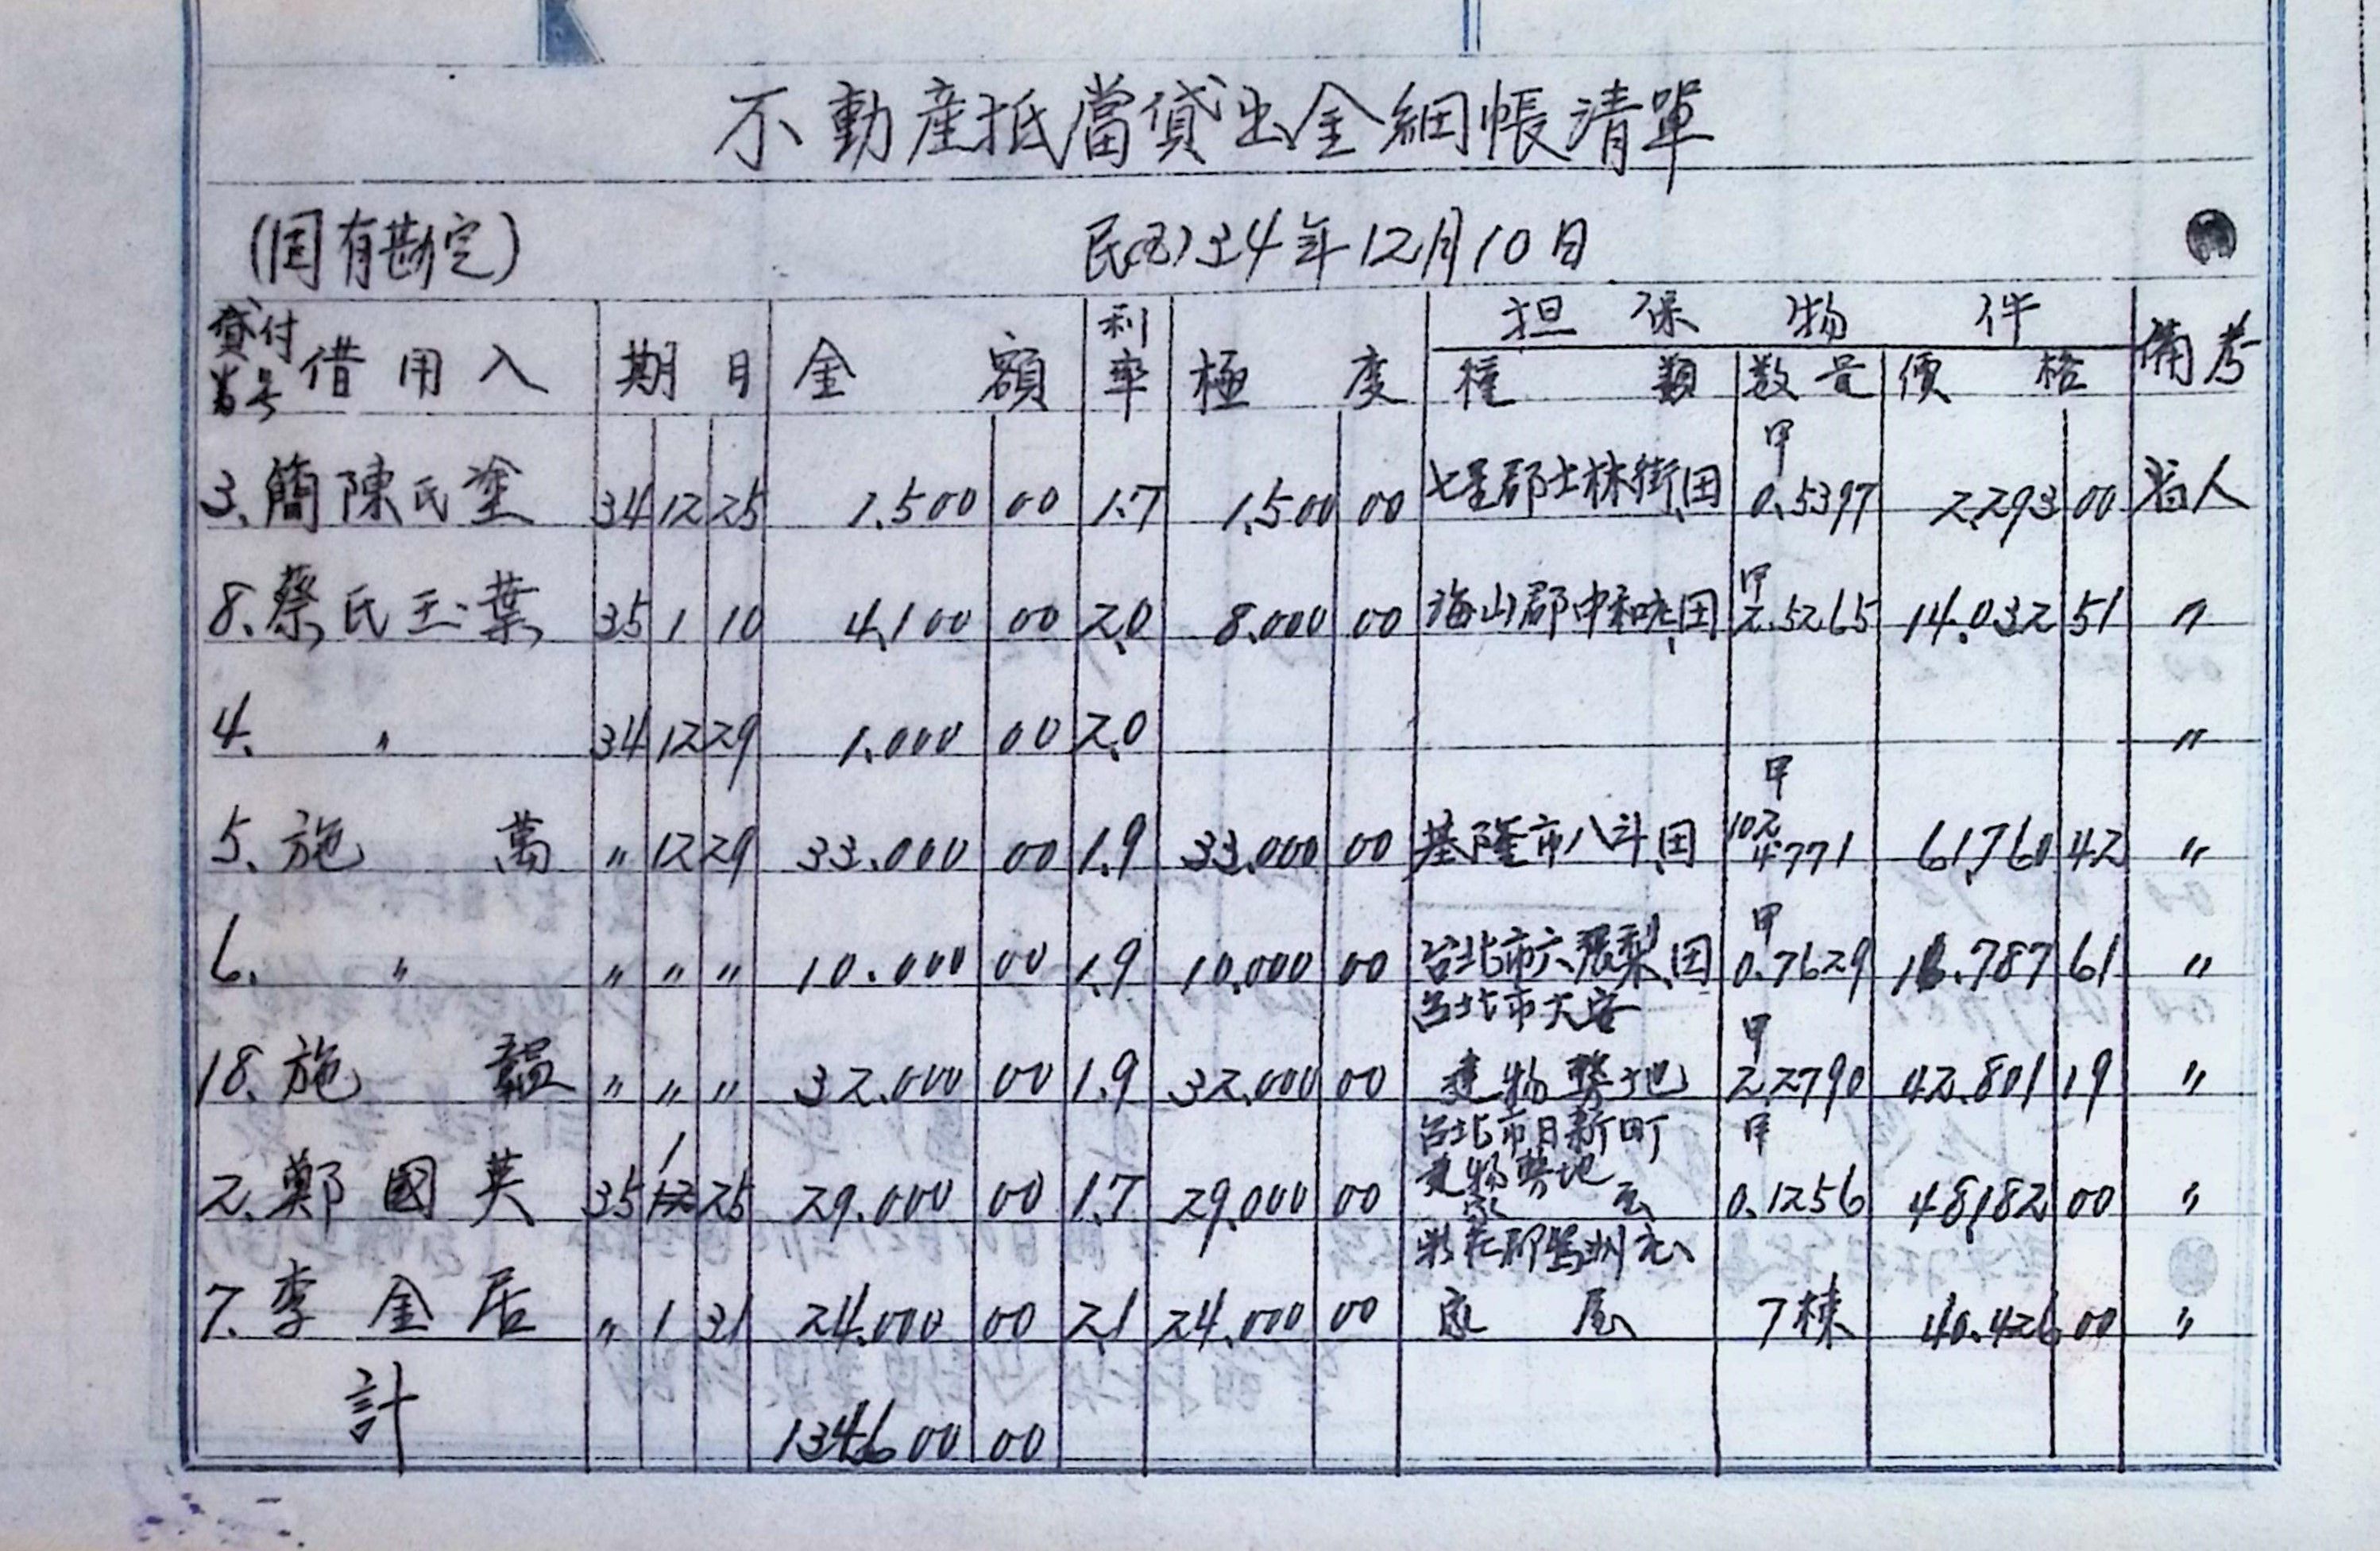 不動産抵當貸出金細帳清單
(固有勘定) 民国34年12月10日
貸付番号 借用人 期日 金額 利率 極度 担保物件 備考
種類 数量 價格
3. 簡陳氏塗 34 12 25 1.500 00 1.7 1.500 00 七星郡士林街、田 甲 0.5397 2.293 00 省人
8. 蔡氏玉葉 35 1 10 4.100 00 2.0 8.000 00 海山郡中和庄、田 甲 2.5265 14.032 51 〃
4. 〃 34 12 29 1.000 00 2.0 〃
5. 施萬 〃 12 29 33.000 00 1.9 33.000 00 基隆市八斗、田 甲 4771 61.760 42 〃
6. 〃 〃 〃 〃 10.000 00 1.9 10.000 00 台北市六張犁、田 甲 0.7629 .787 61 〃
18. 施韞 〃 〃 〃 32.000 00 1.9 32.000 00 台北市大安 建物敷地 甲 2.2790 42.801 19 〃
2. 鄭國英 35 1 25 29.000 00 1.7 29.000 00 台北市日新町 建物敷地 甲 0.1256 48.182 00 〃
7. 李金居 〃 1 31 24.000 00 2.1 24.000 00 新庄郡鷺洲庄、 家屋 7棟 40.426 00 〃
計 134.600 00